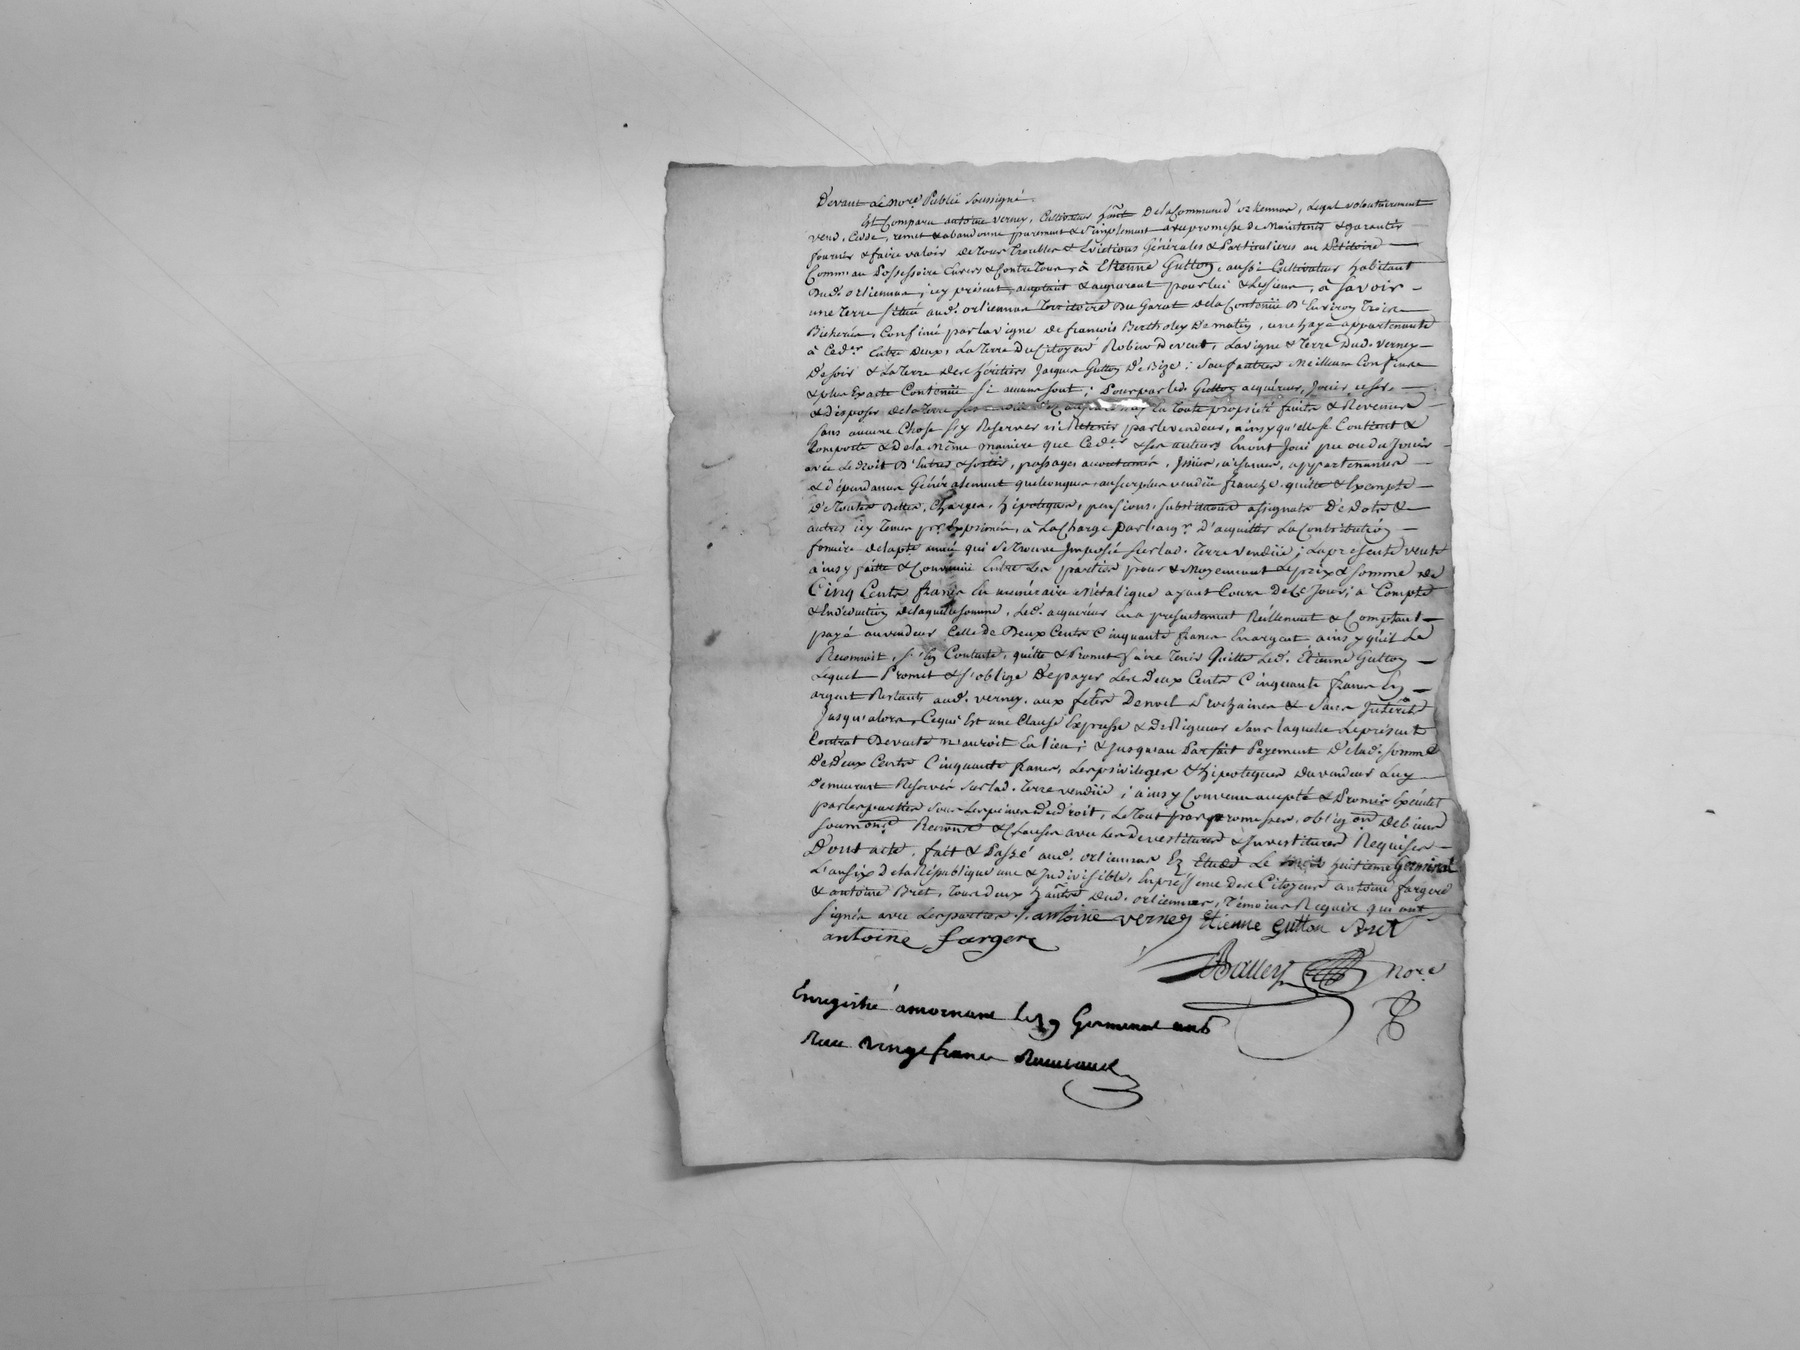 Devant Le Nore. Public Soussigné.
Est Comparu antoine verney, Cultivateur hant. De la Commune d'orliennas, Lequel volontairement
vend, Cedde, remet & abandonne purement & Simplement avec promesse de Maintenir & garantir
fournir & faire valoir de tous Troubles & Evictions Générales & Particulieres au Pétitoire
Comme au Possessoire Envers & Contre Tous, à Etienne Gutton, aussi Cultivateur habitant
Dud. orliennas, icy présent, acceptant & acquerant pour lui & Les Siens, à Savoir
une Terre Située aud. orliennas Territoire Du Garat de la Contenüe D'Environ Trois
Bicherées, Confinée par la vigne de francois Bertholey De matin, une haye appartenante
à Ced.er Entre Deux, La Terre Du Citoyen Robin De vent, La vigne & Terre Dud. verney
De soir & La Terre des héritiers Jacques Gutton De Bize; Sauf autres Meilleurs Confins
& plus Exacte Contenüe Si aucuns sont; Pour par led. Gutton acquéreur, Jouir, user
& Disposer de la Terre vendüe En Toute propriété fruits & Revenus
Sans aucune Chose S'y Reserver ni Retenir par le vendeur, ainsy qu'elle se Contient &
Comporte & De la Même maniere que Ced.er & Ses auteurs En ont Joui pu ou du Jouir
avec Le Droit D'Entrée & Sortie, passages accoutumés, Issües, aisances, appartenances
& dépendances Généralement quelconques, au surplus vendüe franche, quitte & Exempte
De Toutes Dettes, Charges, hipoteques, pensions, Substitutions assignats De Dots &
autres icy Tenus pr. Exprimés, à La Charge par l'acqr. D'acquitter La Contribution
fonciere de la pte. année qui Se Trouve Imposée sur lad. Terre vendüe; La presente vente
ainsy faitte & Convenüe Entre Les parties pour & Moyennant le prix & Somme de
Cinq Cents francs En numéraire Métalique ayant Cours De Ce Jour; à Compte
& En déduction de laquelle somme, Led. acquéreur En a presentement Réellement & Comptant
payé au vendeur Celle de Deux Cents Cinquante francs En argent ainsy qu'il Le
Reconnoit, S'En Contente, quitte & Promet faire Tenir Quitte Led. Etienne Gutton
Lequel Promet & S'oblige De payer Les Deux Cents Cinquante francs En
argent Restants aud. verney, aux fêtes De noel Prochaines & Sans Intérêts
Jusqu'alors, Ce qui Est une Clause Expresse & De Rigueur Sans laquelle Le présent
Contrat De vente n'auroit Eu lieu; & Jusqu'au Parfait Payement De lad. Somme
De Deux Cents Cinquante francs, Les privileges & hipoteques Du vendeur Luy
Demeurent Réservés Sur lad. Terre vendüe; ainsy Convenu accepté & Promis Exécuter
par les parties Sous Les peines De droit, Le Tout par promesses, oblig.on De biens
Soum.ons Renon.s & Clauses avec Les Devestitures & Investitures Requises
Dont acte, fait & Passé aud. orliennas En Etude Le huitieme Germinal
L'an Six De la République une & Indivisible, En présence des Citoyens antoine fargere
& antoine Bret, Tous deux hants. Dud. orliennas, Témoins Requis qui ont
Signés avec Les parties. antoine verney Etienne Gutton Bret
antoine fargere
Balley Nore.
Enregistré a mornant Le 19 Germinal an 6
Recu vingt francs